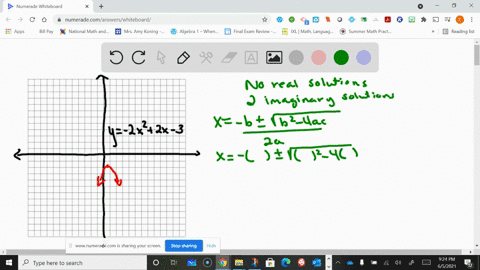 Numerade Whiteboard
numerade.com/answers/whiteboard/
Apps
Bill Pay
National Math and
Mrs. Amy Koning -
Algebra 1 - When
Final Exam Review -
IXL | Math, Language
Smart Tutor Math
Summer Math Pract
Reading list
No real solutions
2 imaginary solutions
y=-2x²+2x-3
x=-b±√b²-4ac
2a
x=-( )±√( )²-4( )
www.numerade.com is sharing your screen.
Stop sharing
Hide
Type here to search
9:24 PM
6/5/2021